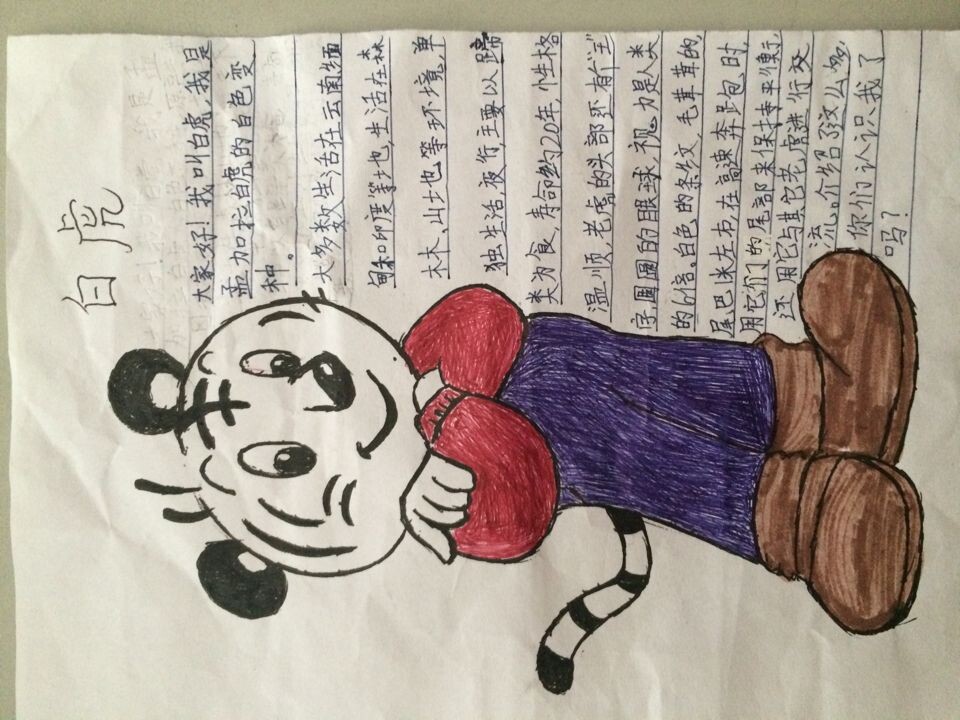 白虎
大家好!我叫白虎,我是
孟加拉白虎的白色变
种。
大多数生活在云南缅
甸和印度等地,生活在森
林、山地等环境,单
独生活,夜行,主要以蹄
类为食,寿命约20年,性格
温顺,老虎的头部还有个"王"
字圆圆的眼球,视力是人类
的6倍。白色的条纹,毛茸茸的
尾巴1米左右,在高速奔跑时,
用它们的尾部来保持平衡,
还用它与其它老虎进行交
流。介绍了这么多,
你们认识我了
吗?